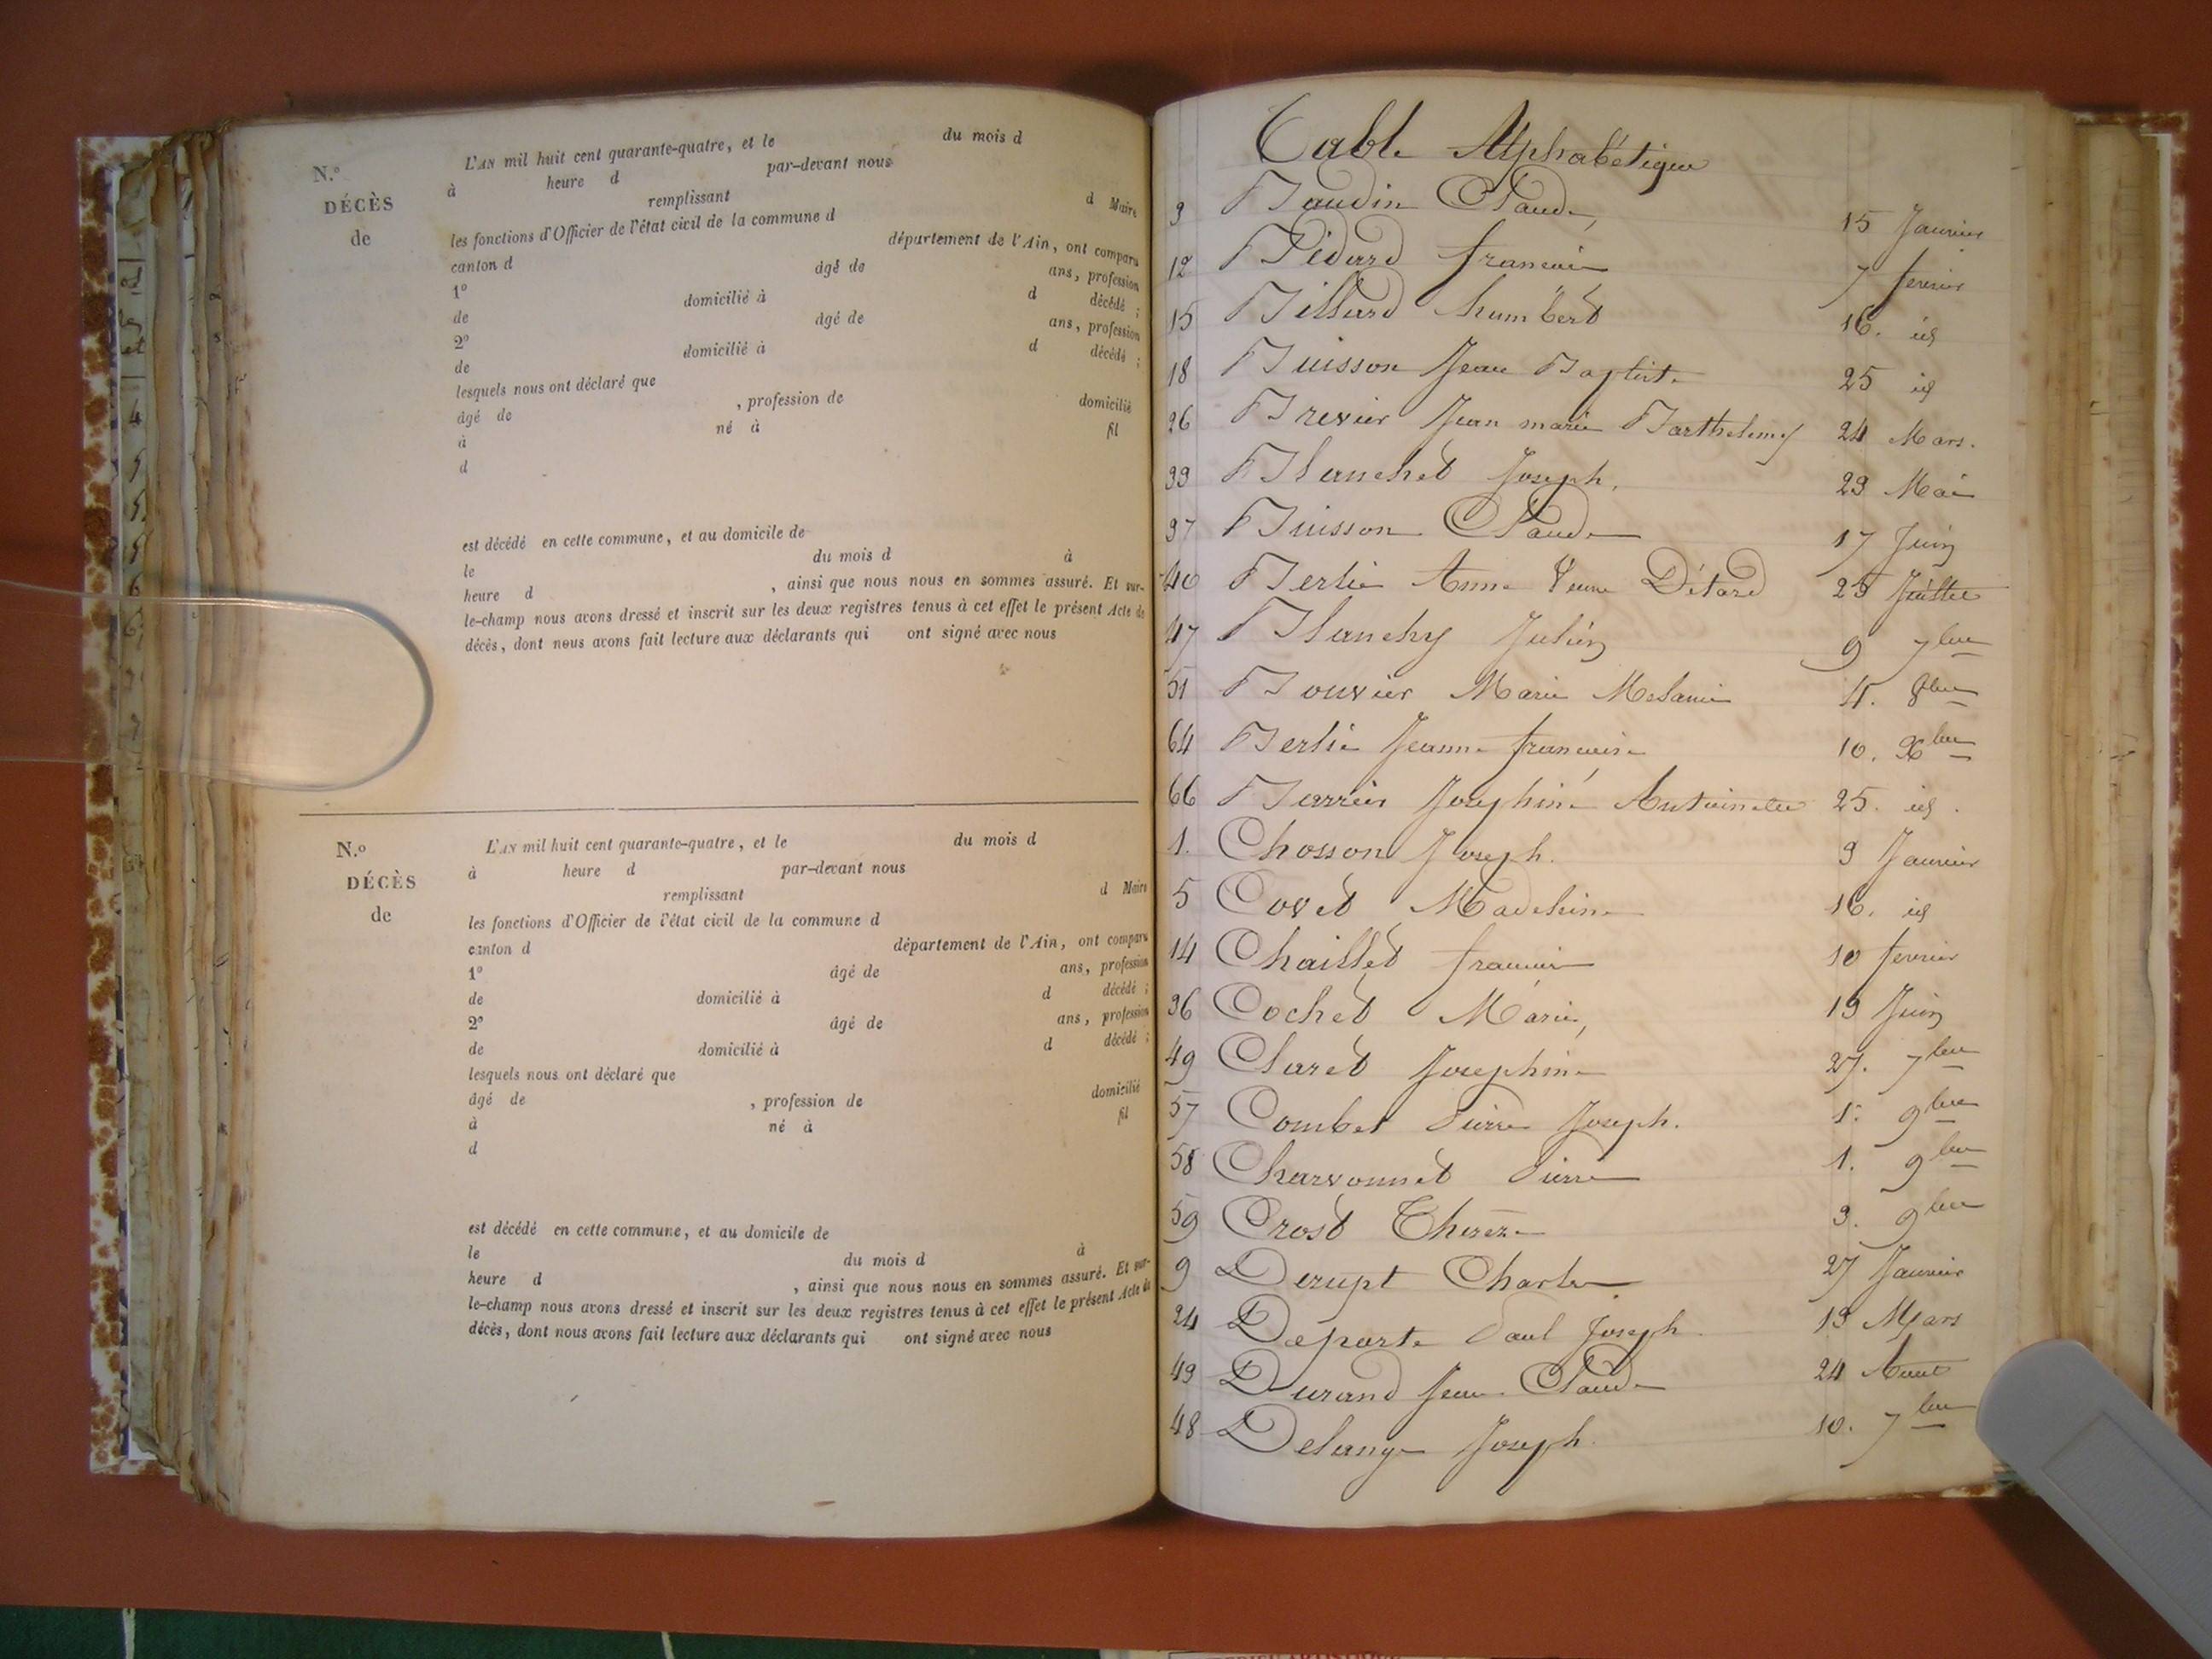 N.º
DÉCÈS
de
L'AN mil huit cent quarante-quatre, et le du mois d
à heure d par-devant nous
remplissant d Maire
les fonctions d'Officier de l'état civil de la commune d
canton d département de l'Ain, ont comparu
1º âgé de ans, profession
de domicilié à d décédé ;
2º âgé de ans, profession
de domicilié à d décédé ;
lesquels nous ont déclaré que
âgé de , profession de domicilié
à né à fil
d
est décédé en cette commune, et au domicile de
le du mois d à
heure d , ainsi que nous nous en sommes assuré. Et sur-
le-champ nous avons dressé et inscrit sur les deux registres tenus à cet effet le présent Acte de
décès, dont nous avons fait lecture aux déclarants qui ont signé avec nous
N.º
DÉCÈS
de
L'AN mil huit cent quarante-quatre, et le du mois d
à heure d par-devant nous
remplissant d Maire
les fonctions d'Officier de l'état civil de la commune d
canton d département de l'Ain, ont comparu
1º âgé de ans, profession
de domicilié à d décédé ;
2º âgé de ans, profession
de domicilié à d décédé ;
lesquels nous ont déclaré que
âgé de , profession de domicilié
à né à fil
d
est décédé en cette commune, et au domicile de
le du mois d à
heure d , ainsi que nous nous en sommes assuré. Et sur-
le-champ nous avons dressé et inscrit sur les deux registres tenus à cet effet le présent Acte de
décès, dont nous avons fait lecture aux déclarants qui ont signé avec nous
Table Alphabétique
3 Baudin Claude, 15 Janvier
12 françois 7 fevrier
15 Billard humbert 16. id
18 Buisson Jean Baptiste 25 id
26 Brevier Jean marie Barthelemy 24 Mars.
33 Blanchet Joseph. 23 Mai
37 Buisson Claude 17 Juin
40 Berlie Anne Veuve Détard 25 Juillet
47 Blanchy Julien 9 7bre
51 Bouvier Marie Melanie 4. 8bre
64 Berlie Jeanne francoise 10. Xbre
66 Josephine Antoinette 25. id.
1. Chosson Joseph. 3 Janvier
5 Covet Madeleine 16. id
14 Chaillet francois 10 fevrier
36 Cochet Marie, 13 Juin
49 Claret Josephine 27. 7bre
57 Combet Pierre Joseph. 1. 9bre
58 Charvonnet Pierre 1. 9bre
59 Crost Thereze 3. 9bre
9 Derupt Charles 27 Janvier
24 Deporte Paul Joseph. 13 Mars
43 Durand Jean Claude 24 Aout
48 Delange Joseph. 10. 7bre